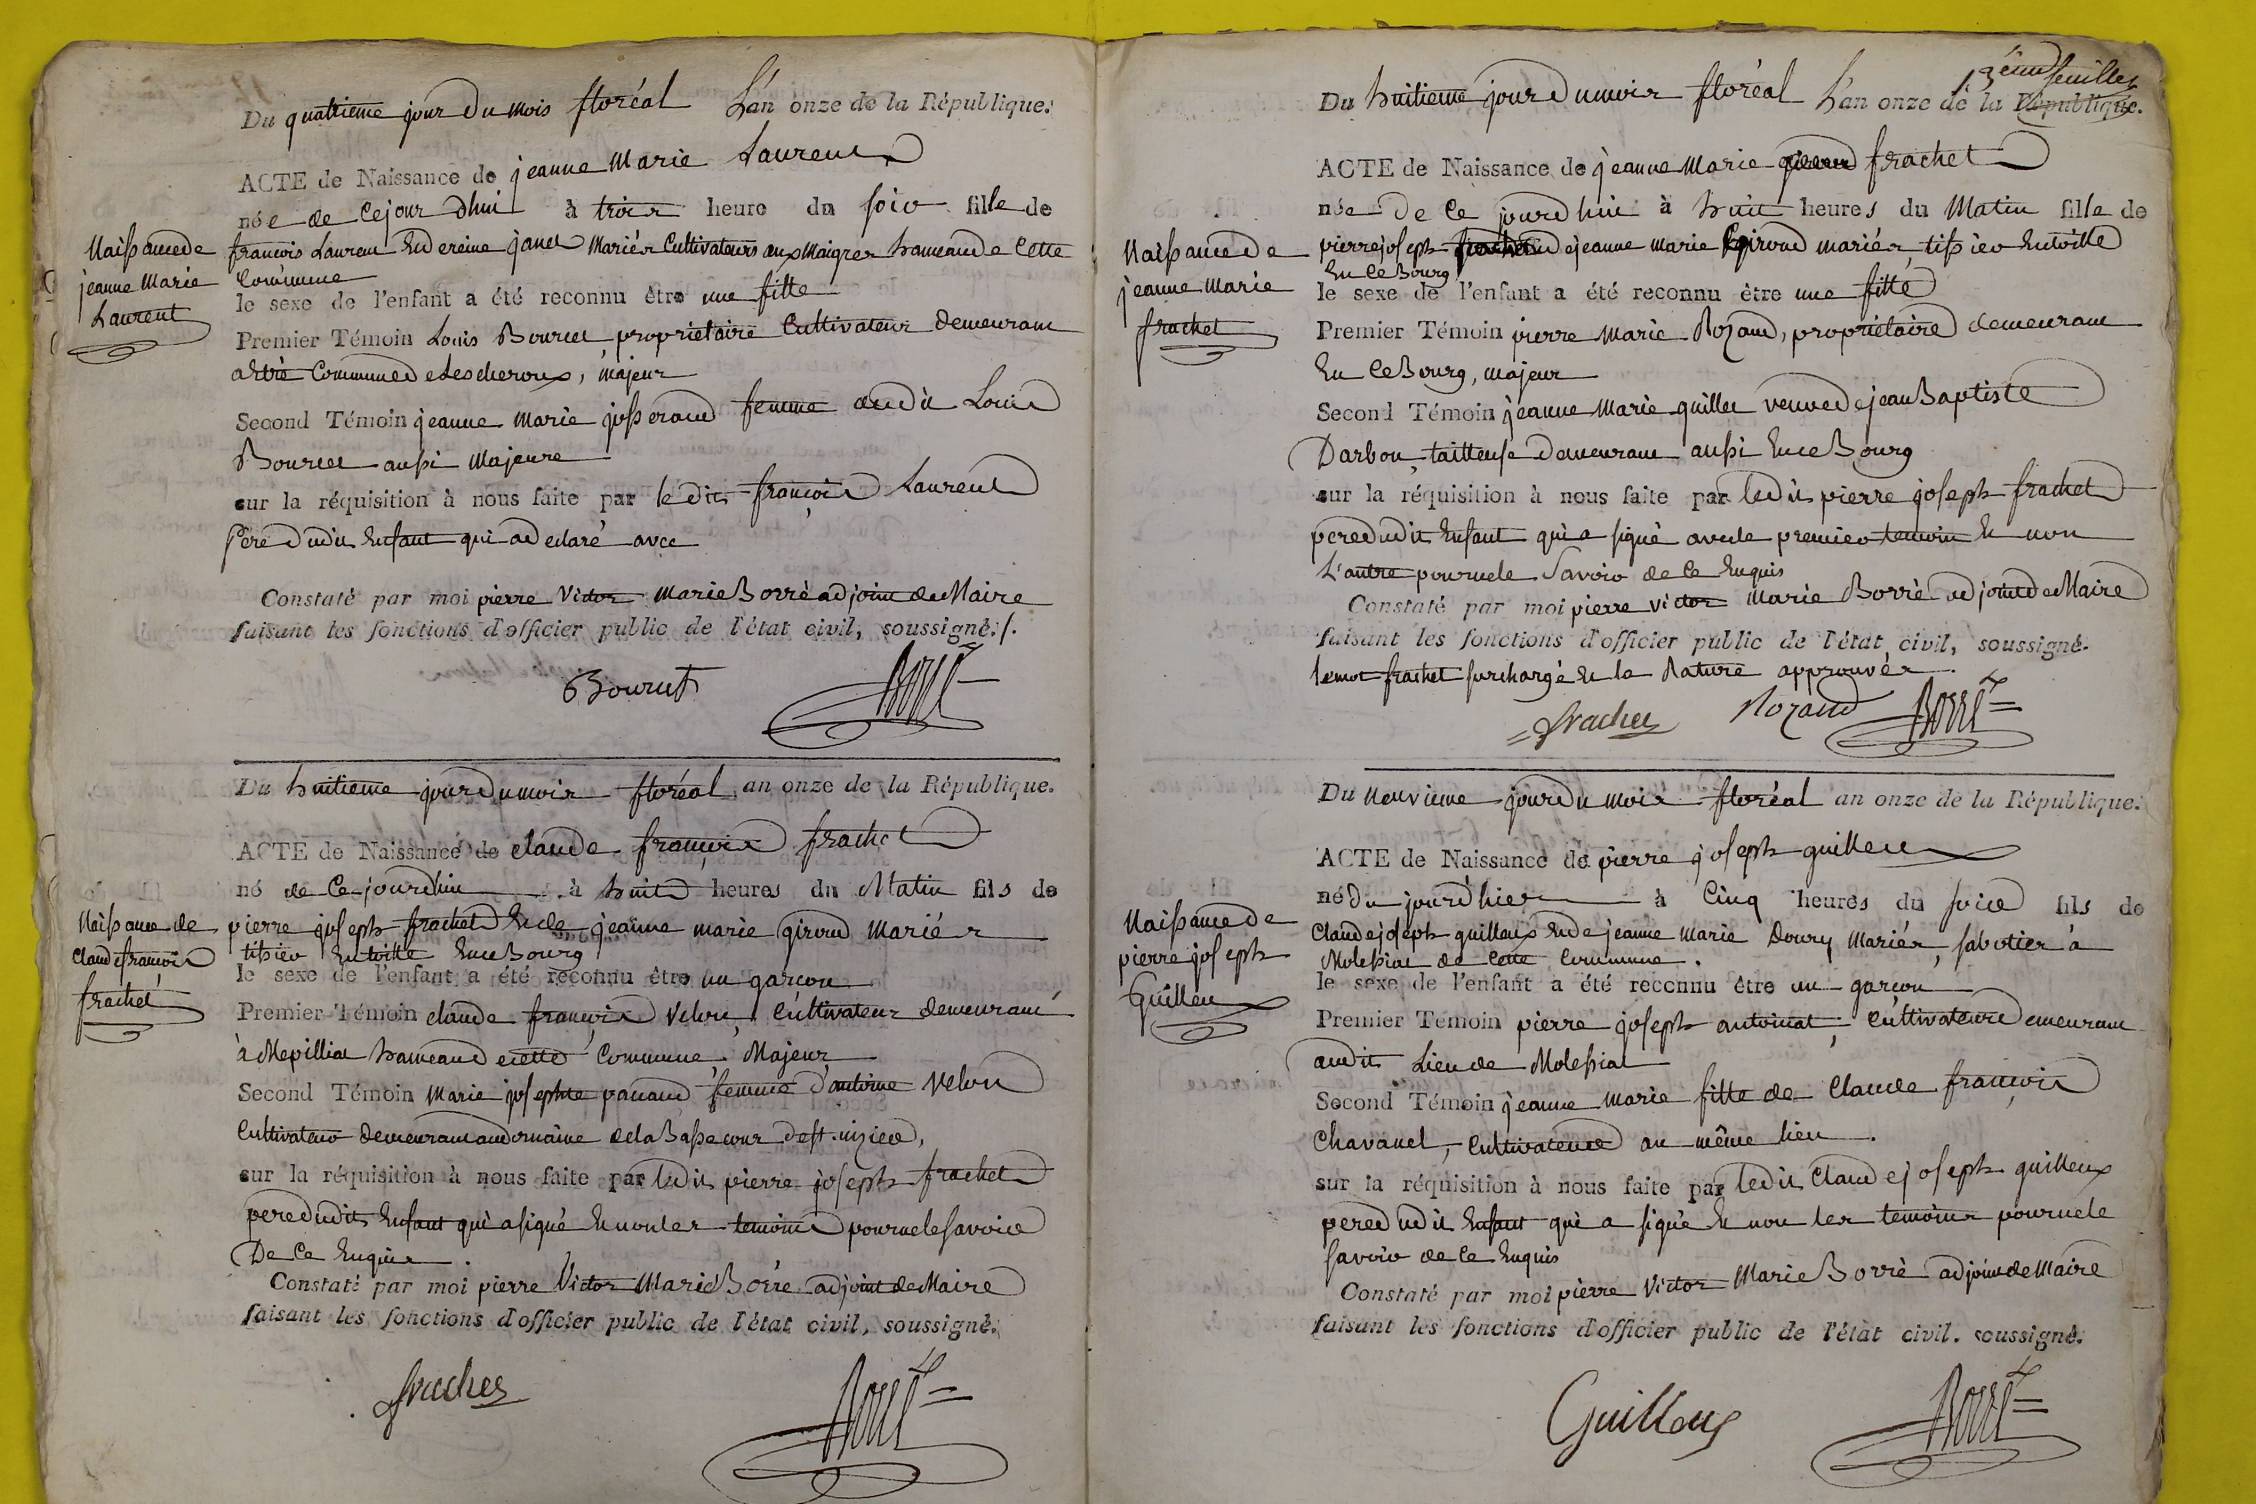 Du quatrieme jour du mois floréal L'an onze de la République.
ACTE de Naissance de jeanne Marie Laurent
née de Cejour dhui à trois heure du soir fille de
Naissance de
jeanne Marie
Laurent
françois Laurent Et dereine janet Mariés Cultivateurs aux Maigres hameau de Cette
Commune
le sexe de l'enfant a été reconnu être une fille
Premier Témoin Louis Bourcet propriétaire Cultivateur demeurant
Commune de Lescheroux, majeur
Second Témoin jeanne Marie josserand femme audit Louis
Bourcet aussi Majeure
sur la réquisition à nous faite par ledit françois Laurent
Pere dudit Enfant qui a declaré avec
Constaté par moi pierre Victor Marie Borré adjoint de Maire
faisant les fonctions d'officier public de l'état civil, soussigné./.
Bourcet Borré
Du huitieme jour du mois floréal an onze de la République.
ACTE de Naissance de claude françois frachet
né de Ce jourdhui à huit heures du Matin fils de
Naissance de
Claude françois
frachet
pierre joseph frachet Et de jeanne marie giroud Mariés
tissier En toille Ence Bourg
le sexe de l'enfant a été reconnu être un garcon
Premier Témoin claude françois Velon, Cultivateur demeurant
à Mepilliat hameau de cette Commune, Majeur
Second Témoin Marie josephte panaud femme d'antoine Velon
Cultivateur demeurant au domaine de la Basse cour
sur la réquisition à nous faite par ledit pierre joseph frachet
pere dudit Enfant qui a signé Et non les temoins pour ne le savoir
De Ce Enquis.
Constaté par moi pierre Victor Marie Borré adjoint de Maire
faisant les fonctions d'officier public de l'état civil, soussigné.
frachet Borré
13eme feuillet
Du huitieme jour du mois floréal L'an onze de la République.
ACTE de Naissance de jeanne Marie frachet
née De Ce jourdhui à huit heures du Matin fille de
Naissance de
jeanne Marie
frachet
pierre joseph frachet Et de jeanne marie giroud mariés, tissier En toille
En Ce Bourg
le sexe de l'enfant a été reconnu être une fille
Premier Témoin pierre Marie Rozand, propriétaire demeurant
En Ce Bourg, majeur
Second Témoin jeanne Marie guillet veuve de jean Baptiste
Darbon, tailleuse demeurant aussi En ce Bourg
sur la réquisition à nous faite par ledit pierre joseph frachet
pere dudit Enfant qui a signé avec le premier temoin Et non
L'autre pour ne le Savoir de Ce Enquis
Constaté par moi pierre victor Marie Borré adjoint de Maire
faisant les fonctions d'officier public de l'état civil, soussigné.
le mot frachet surchargé Et la Rature approuvés.
frachet Rozand Borré
Du neuvieme jour du mois floréal an onze de la République.
ACTE de Naissance de pierre joseph guilleux
né du jourd'hier à Cinq heures du soir fils de
Naissance de
pierre joseph
Guilleu
Claude joseph guilleux Et de jeanne Marie Doury Mariés, sabotier à
Molissiat de Cette Commune.
le sexe de l'enfant a été reconnu être un garcon
Premier Témoin pierre joseph antoinat, Cultivateur demeurant
audit Lieu de Molissiat
Second Témoin jeanne marie fille de Claude françois
Chavanel, Cultivateur au même lieu.
sur la réquisition à nous faite par ledit Claude joseph guilleux
pere dudit Enfant qui a signé Et non les temoins pour ne le
savoir de Ce Enquis
Constaté par moi pierre Victor Marie Borré adjoint de Maire
faisant les fonctions d'officier public de l'état civil. soussigné.
Guilleux Borré